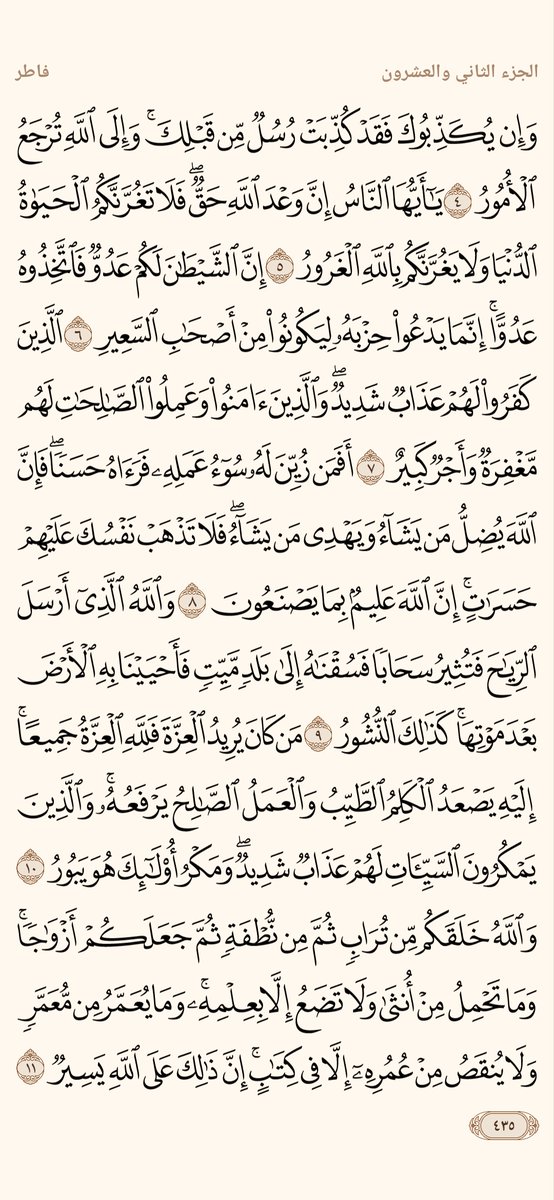 الجزء الثاني والعشرون
فاطر
وَإِن يُكَذِّبُوكَ فَقَدۡ كُذِّبَتۡ رُسُلٞ مِّن قَبۡلِكَۚ وَإِلَى ٱللَّهِ تُرۡجَعُ
ٱلۡأُمُورُ ٤ يَٰٓأَيُّهَا ٱلنَّاسُ إِنَّ وَعۡدَ ٱللَّهِ حَقّٞۖ فَلَا تَغُرَّنَّكُمُ ٱلۡحَيَوٰةُ
ٱلدُّنۡيَا وَلَا يَغُرَّنَّكُم بِٱللَّهِ ٱلۡغَرُورُ ٥ إِنَّ ٱلشَّيۡطَٰنَ لَكُمۡ عَدُوّٞ فَٱتَّخِذُوهُ
عَدُوًّاۚ إِنَّمَا يَدۡعُواْ حِزۡبَهُۥ لِيَكُونُواْ مِنۡ أَصۡحَٰبِ ٱلسَّعِيرِ ٦ ٱلَّذِينَ
كَفَرُواْ لَهُمۡ عَذَابٞ شَدِيدٞۖ وَٱلَّذِينَ ءَامَنُواْ وَعَمِلُواْ ٱلصَّٰلِحَٰتِ لَهُم
مَّغۡفِرَةٞ وَأَجۡرٞ كَبِيرٌ ٧ أَفَمَن زُيِّنَ لَهُۥ سُوٓءُ عَمَلِهِۦ فَرَءَاهُ حَسَنٗاۖ فَإِنَّ
ٱللَّهَ يُضِلُّ مَن يَشَآءُ وَيَهۡدِي مَن يَشَآءُۖ فَلَا تَذۡهَبۡ نَفۡسُكَ عَلَيۡهِمۡ
حَسَرَٰتٍۚ إِنَّ ٱللَّهَ عَلِيمُۢ بِمَا يَصۡنَعُونَ ٨ وَٱللَّهُ ٱلَّذِيٓ أَرۡسَلَ
ٱلرِّيَٰحَ فَتُثِيرُ سَحَابٗا فَسُقۡنَٰهُ إِلَىٰ بَلَدٖ مَّيِّتٖ فَأَحۡيَيۡنَا بِهِ ٱلۡأَرۡضَ
بَعۡدَ مَوۡتِهَاۚ كَذَٰلِكَ ٱلنُّشُورُ ٩ مَن كَانَ يُرِيدُ ٱلۡعِزَّةَ فَلِلَّهِ ٱلۡعِزَّةُ جَمِيعًاۚ
إِلَيۡهِ يَصۡعَدُ ٱلۡكَلِمُ ٱلطَّيِّبُ وَٱلۡعَمَلُ ٱلصَّٰلِحُ يَرۡفَعُهُۥۚ وَٱلَّذِينَ
يَمۡكُرُونَ ٱلسَّيِّـَٔاتِ لَهُمۡ عَذَابٞ شَدِيدٞۖ وَمَكۡرُ أُوْلَٰٓئِكَ هُوَ يَبُورُ ١٠
وَٱللَّهُ خَلَقَكُم مِّن تُرَابٖ ثُمَّ مِن نُّطۡفَةٖ ثُمَّ جَعَلَكُمۡ أَزۡوَٰجٗاۚ
وَمَا تَحۡمِلُ مِنۡ أُنثَىٰ وَلَا تَضَعُ إِلَّا بِعِلۡمِهِۦۚ وَمَا يُعَمَّرُ مِن مُّعَمَّرٖ
وَلَا يُنقَصُ مِنۡ عُمُرِهِۦٓ إِلَّا فِي كِتَٰبٍۚ إِنَّ ذَٰلِكَ عَلَى ٱللَّهِ يَسِيرٞ ١١
٤٣٥